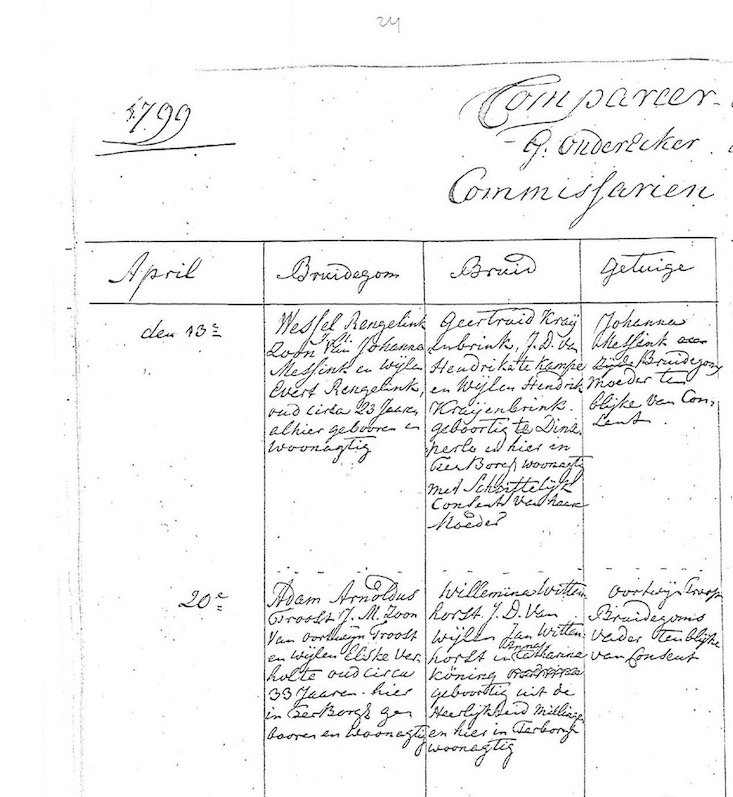 24
1799
Compareer
G. Onderecker
Commissarien
April
Bruidegom
Bruid
Getuige
den 13e
Wessel Rengelink
Zoon Van Johanna
Messink en wijlen
Evert Rengelink,
oud circa 23 Jaaren
alhier gebooren en
woonagtig
Geertruid Kraij
enbrink, J. D. Van
Hendrika te Kampe
en Wijlen Hendrik
Kraijenbrink.
geboortig te Dinx
perlo en hier in
TerBorch woonagtig
met Schriftelijk
Consent van haar
Moeder
Johanna
Messink
Bruidegoms
moeder ten
blijke van Con-
sent.
20e
Adam Arnoldus
Troost J. M. Zoon
Van oortwijn Troost
en wijlen Eliske Ver
holte oud circa
33 Jaaren. hier
in TerBorgh ge
booren en woonagtig
Willemina Witten
horst J. D. Van
Wijlen Jan Witten
horst en Anna Catharina
Köning
geboortig uit de
Heerlijkheid Millingen
en hier in Terborgh
woonagtig
oortwijn Troost
Bruidegoms
vader ten blijke
van Consent